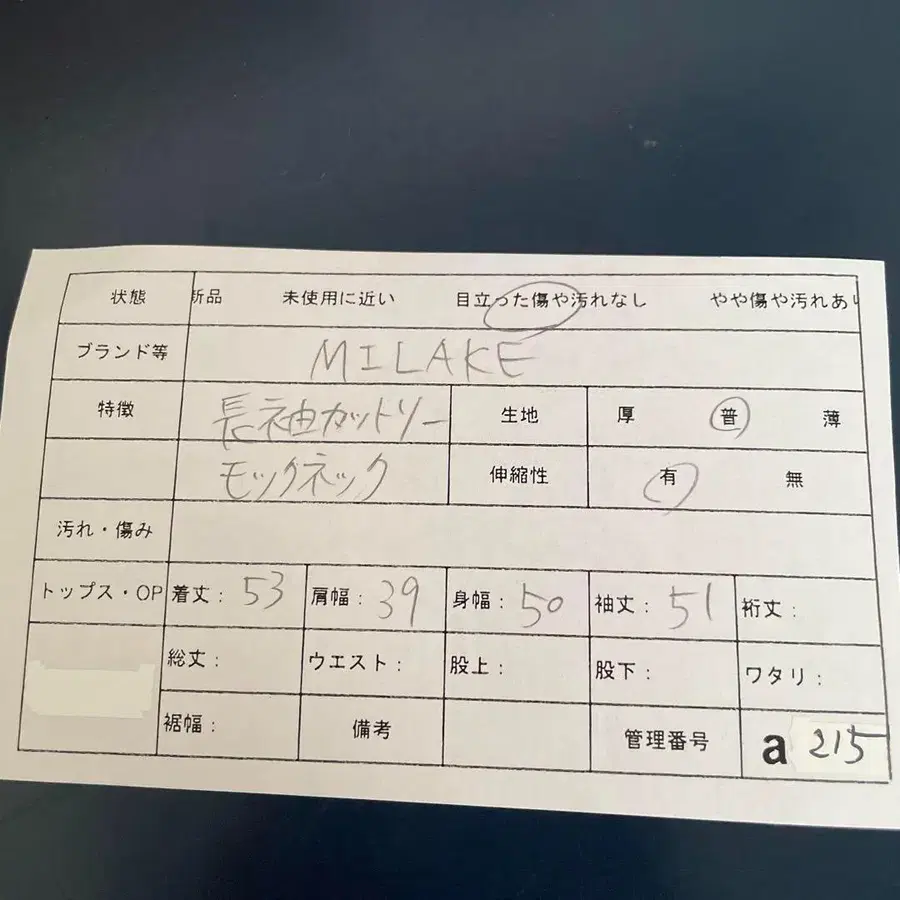 状態 新品 未使用に近い 目立った傷や汚れなし やや傷や汚れあり
ブランド等 MILAKE
特徴 長袖カットソー 生地 厚 普 薄
モックネック 伸縮性 有 無
汚れ・傷み
トップス・OP 着丈: 53 肩幅: 39 身幅: 50 袖丈: 51 裄丈:
総丈: ウエスト: 股上: 股下: ワタリ:
裾幅: 備考 管理番号 a 215